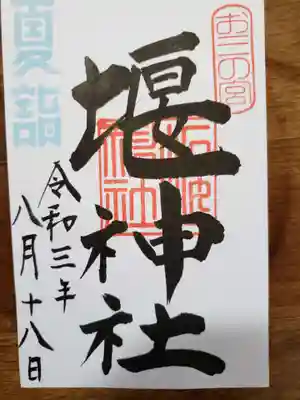 お三の宮
堰神社
夏詣
令和三年
八月十八日